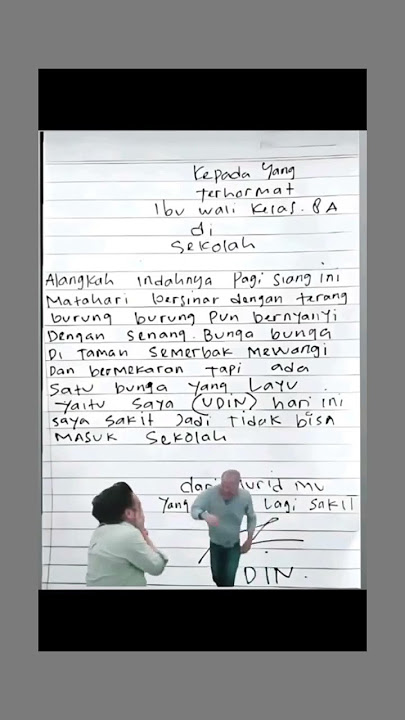 Kepada Yang
terhormat
Ibu wali kelas. 8A
di
Sekolah
Alangkah indahnya Pagi siang ini
Matahari bersinar dengan terang
burung burung pun bernyanyi
Dengan senang. Bunga bunga
Di Taman semerbak mewangi
Dan bermekaran tapi ada
Satu bunga yang Layu.
Yaitu saya (UDIN) hari ini
saya sakit Jadi Tidak bisa
MASUK Sekolah
dari murid mu
Yang Lagi sakit
DIN.